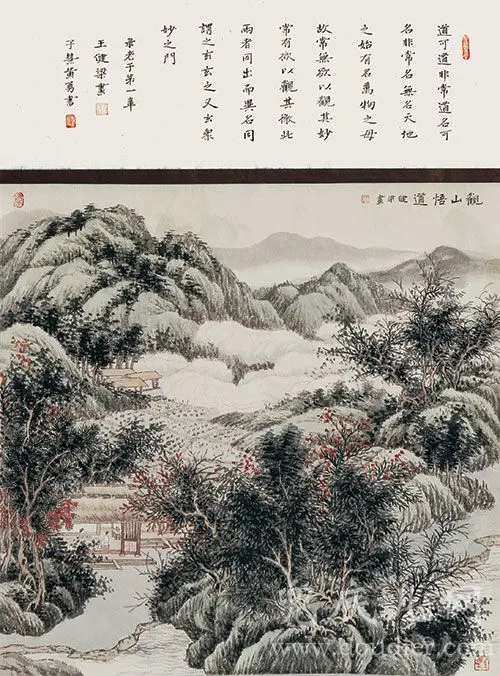 道可道非常道名可
名非常名無名天地
之始有名萬物之母
故常無欲以觀其妙
常有欲以觀其徼此
兩者同出而異名同
謂之玄玄之又玄衆
妙之門
录老子第一章
王健梁畫
黄勇書
觀山悟道 健梁畫